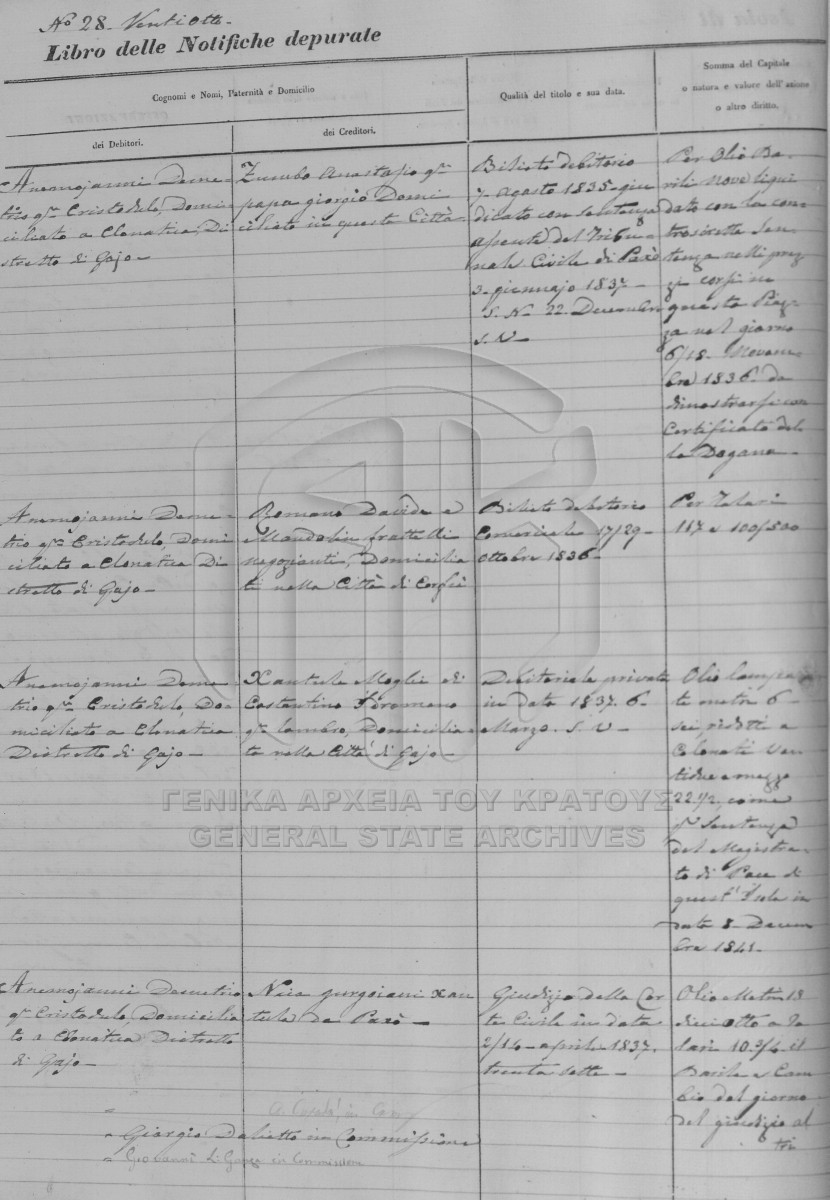 No 28. Ventiotto
Libro delle Notifiche depurate
Cognomi e Nomi, Paternità e Domicilio
dei Debitori.
dei Creditori.
Qualità del titolo e sua data.
Somma del Capitale
o natura e valore dell'azione
o altro diritto.
Anemojanni Deme-
trio qm Cristodulo, Domi-
ciliato a Clonatica, Di
stretto di Gajo-
Zumbo Anastasio qm
papa giorgio Domi
ciliato in questa Città-
Biglieto debitorio
7 Agosto 1835-giu
dicato con Sentenza
del Tribu-
nale Civile di Paxò
3 giennajo 1837-
S. N. 22 Decembre
S. V-
Per Olio Ba-
rili Nove liqui
dato con la con
Sen-
tenza nelli prez
zi corsi in
questa Piaz-
za nel giorno
6/18 Novem-
bre 1836 da
dimostrarsi con
Certificato del
la Dogana-
Anemojanni Deme-
trio qm Cristodulo, Domi
ciliato a Clonatica Di
stretto di Gajo-
Romano Davide e
Mandolin fratelli
negozianti, Domicilia
ti nella Città di Corfù
Biglieto debitorio
Comerciale 17/29-
Ottobre 1836-
Per Talari
117 e 100/500
Anemojanni Deme-
trio qm Cristodulo, Do-
miciliato a Clonatica
Distretto di Gajo-
Xantula Moglie di
Costantino
qm Lambro, Domicilia-
ta nella Città di Gajo-
Debitoriale privata
in data 1837. 6-
Marzo. S. V-
Olio lampan
te metri 6-
sei, ridotti a
Colonati Ven
tidue e mezzo
22 1/2, come
pr Sentenza
del Magistra-
to di Pace di
quest' Isola in
data 8 Decem
bre 1841-
Anemojanni Demetrio
qm Cristodulo, Domicilia
to a Clonatica Distretto
di Gajo-
Nica Xan
tula da Paxò-
Giudizio della Cor
te Civile in data
2/14 aprile 1837.
trenta sette-
Olio Metri 18
dieciotto a Ta
lari 10.3/4 il
Barile e Cam
bio del giorno
del giudizio al
tri
Giorgio in Commissione
Giovanni di in Commissione
ΓΕΝΙΚΑ ΑΡΧΕΙΑ ΤΟΥ ΚΡΑΤΟΥΣ
GENERAL STATE ARCHIVES